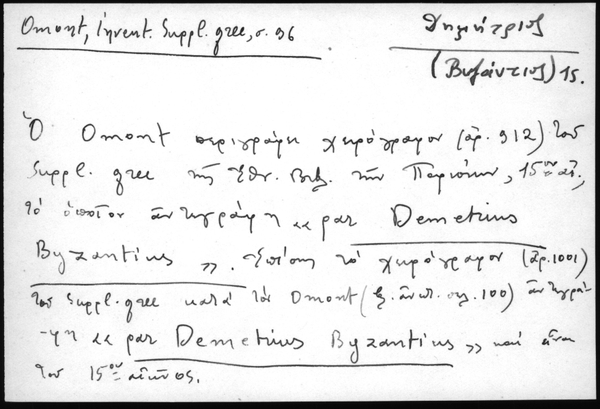 Omont, Invent. Suppl. grec, σ. 96
Δημήτριος
(Βυζάντιος) 15.
Ὁ Omont περιγράφει χειρόγραφον (ἀρ. 912) τοῦ
Suppl. grec τῆς Ἐθν. Βιβ. τῶν Παρισίων, 15ου αἰ.,
τὸ ὁποῖον ἀντεγράφη «par Demetrius
Byzantius». Ἐπίσης τὸ χειρόγραφον (ἀρ. 1001)
τοῦ Suppl. grec κατὰ τὸν Omont (ἔ. ἀνωτ. σελ. 100) ἀντεγρά-
φη «par Demetrius Byzantius» καὶ εἶναι
τοῦ 15ου αἰῶνος.